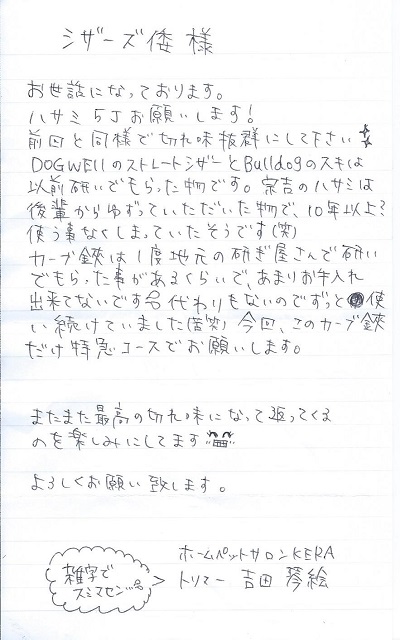 シザーズ倭 様
お世話になっております。
ハサミ 5丁お願いします!
前回と同様で切れ味抜群にして下さい
DOGWELLのストレートシザーとBulldogのスキは
以前研いでもらった物です。宗吉のハサミは
後輩からゆずっていただいた物で、10年以上?
使う事なくしまっていたそうです(笑)
カーブ鋏は1度地元の研ぎ屋さんで研い
でもらった事があるくらいで、あまりお手入れ
出来てないです 代わりもないのでずっと使
い続けていました(苦笑) 今回、このカーブ鋏
だけ特急コースでお願いします。
またまた最高の切れ味になって返ってくる
のを楽しみにしてます
よろしくお願い致します。
ホームペットサロンKERA
トリマー 吉田 琴絵
雑字で
スミマセン